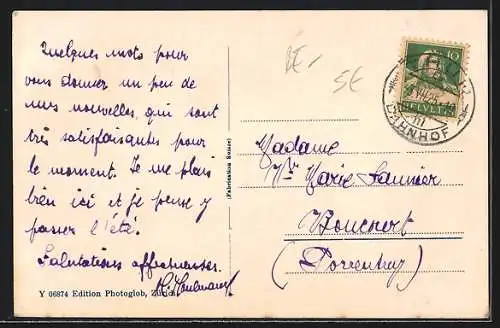 Quelques mots pour
vous donner un peu de
mes nouvelles, qui sont
très satisfaisantes pour
le moment. Je me plais
bien ici et je pense y
passer l'été.
Salutations affectueuses.
Y 06874 Edition Photoglob, Zürich
(Fabrication Suisse)
BE-
5E
10
HELVETIA
III
BAHNHOF
Madame
Marie Saunier
Boncourt
(Porrentruy)